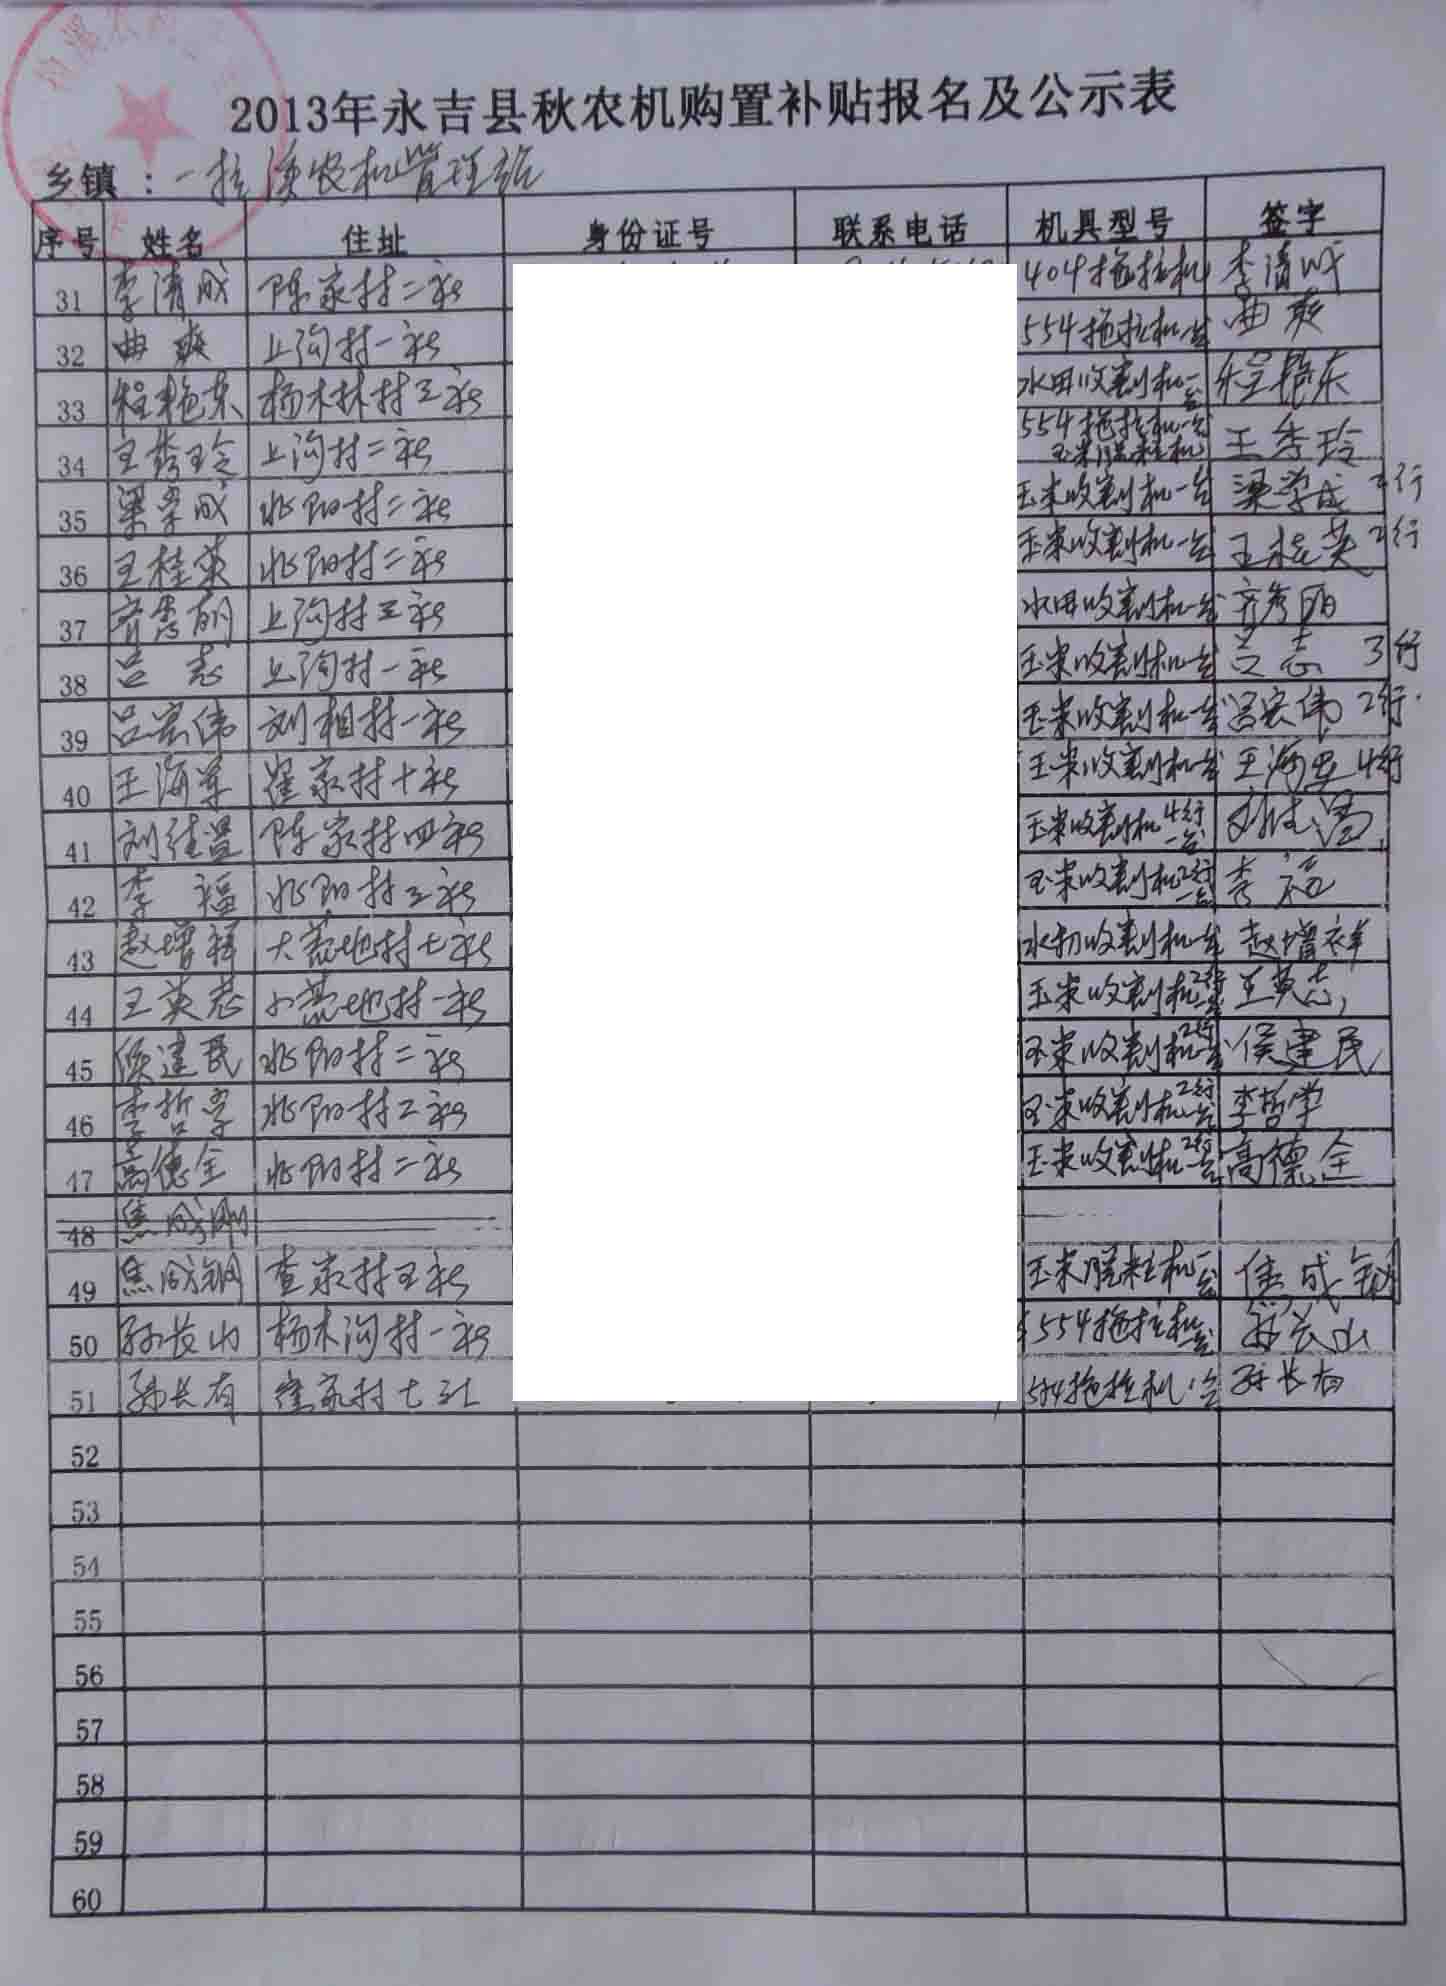 2013年永吉县秋农机购置补贴报名及公示表
乡镇：一拉溪农机管理站
序号 姓名 住址 身份证号 联系电话 机具型号 签字
31 李清成 陈家村二社 404拖拉机 李清成
32 曲爽 上沟村一社 554拖拉机一台 曲爽
33 程艳东 杨木林村三社 水田收割机一台 程艳东
34 王秀玲 上沟村二社 554拖拉机一台 玉米脱粒机 王秀玲
35 梁学成 兆阳村二社 玉米收割机一台 梁学成 2行
36 王桂英 兆阳村二社 玉米收割机一台 王桂英 2行
37 齐秀丽 上沟村三社 水田收割机一台 齐秀丽
38 吕志 上沟村一社 玉米收割机一台 吕志 3行
39 吕宏伟 刘相村一社 玉米收割机一台 吕宏伟 2行
40 王海军 崔家村十社 玉米收割机一台 王海军 4行
41 陈家村四社 玉米收割机4行一台
42 李福 兆阳村三社 玉米收割机2行一台 李福
43 赵增祥 大荒地村七社 收割机一台 赵增祥
44 王英志 小荒地村一社 玉米收割机2行一台 王英志
45 侯建民 兆阳村二社 玉米收割机2行一台 侯建民
46 李哲学 兆阳村二社 玉米收割机2行一台 李哲学
47 高德全 兆阳村二社 玉米收割机2行一台 高德全
48 焦成刚
49 焦成钢 查家村五社 玉米脱粒机一台 焦成钢
50 孙长山 杨木沟村一社 554拖拉机一台 孙长山
51 孙长有 崔家村七社 504拖拉机1台 孙长有
52
53
54
55
56
57
58
59
60